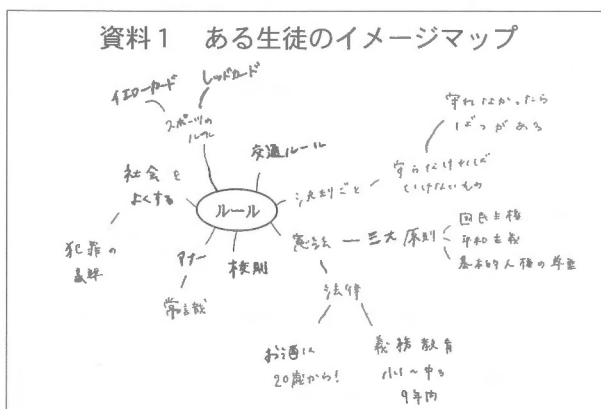 資料1 ある生徒のイメージマップ
イエローカード
レッドカード
スポーツの
ルール
交通ルール
守れなかったら
ばつがある
決まりごと
守らなければ
いけないもの
社会を
よくする
ルール
犯罪の
マナー
常識
校則
憲法
三大原則
国民主権
平和主義
基本的人権の尊重
法律
お酒は
20歳から!
義務教育
小〜中
9年間